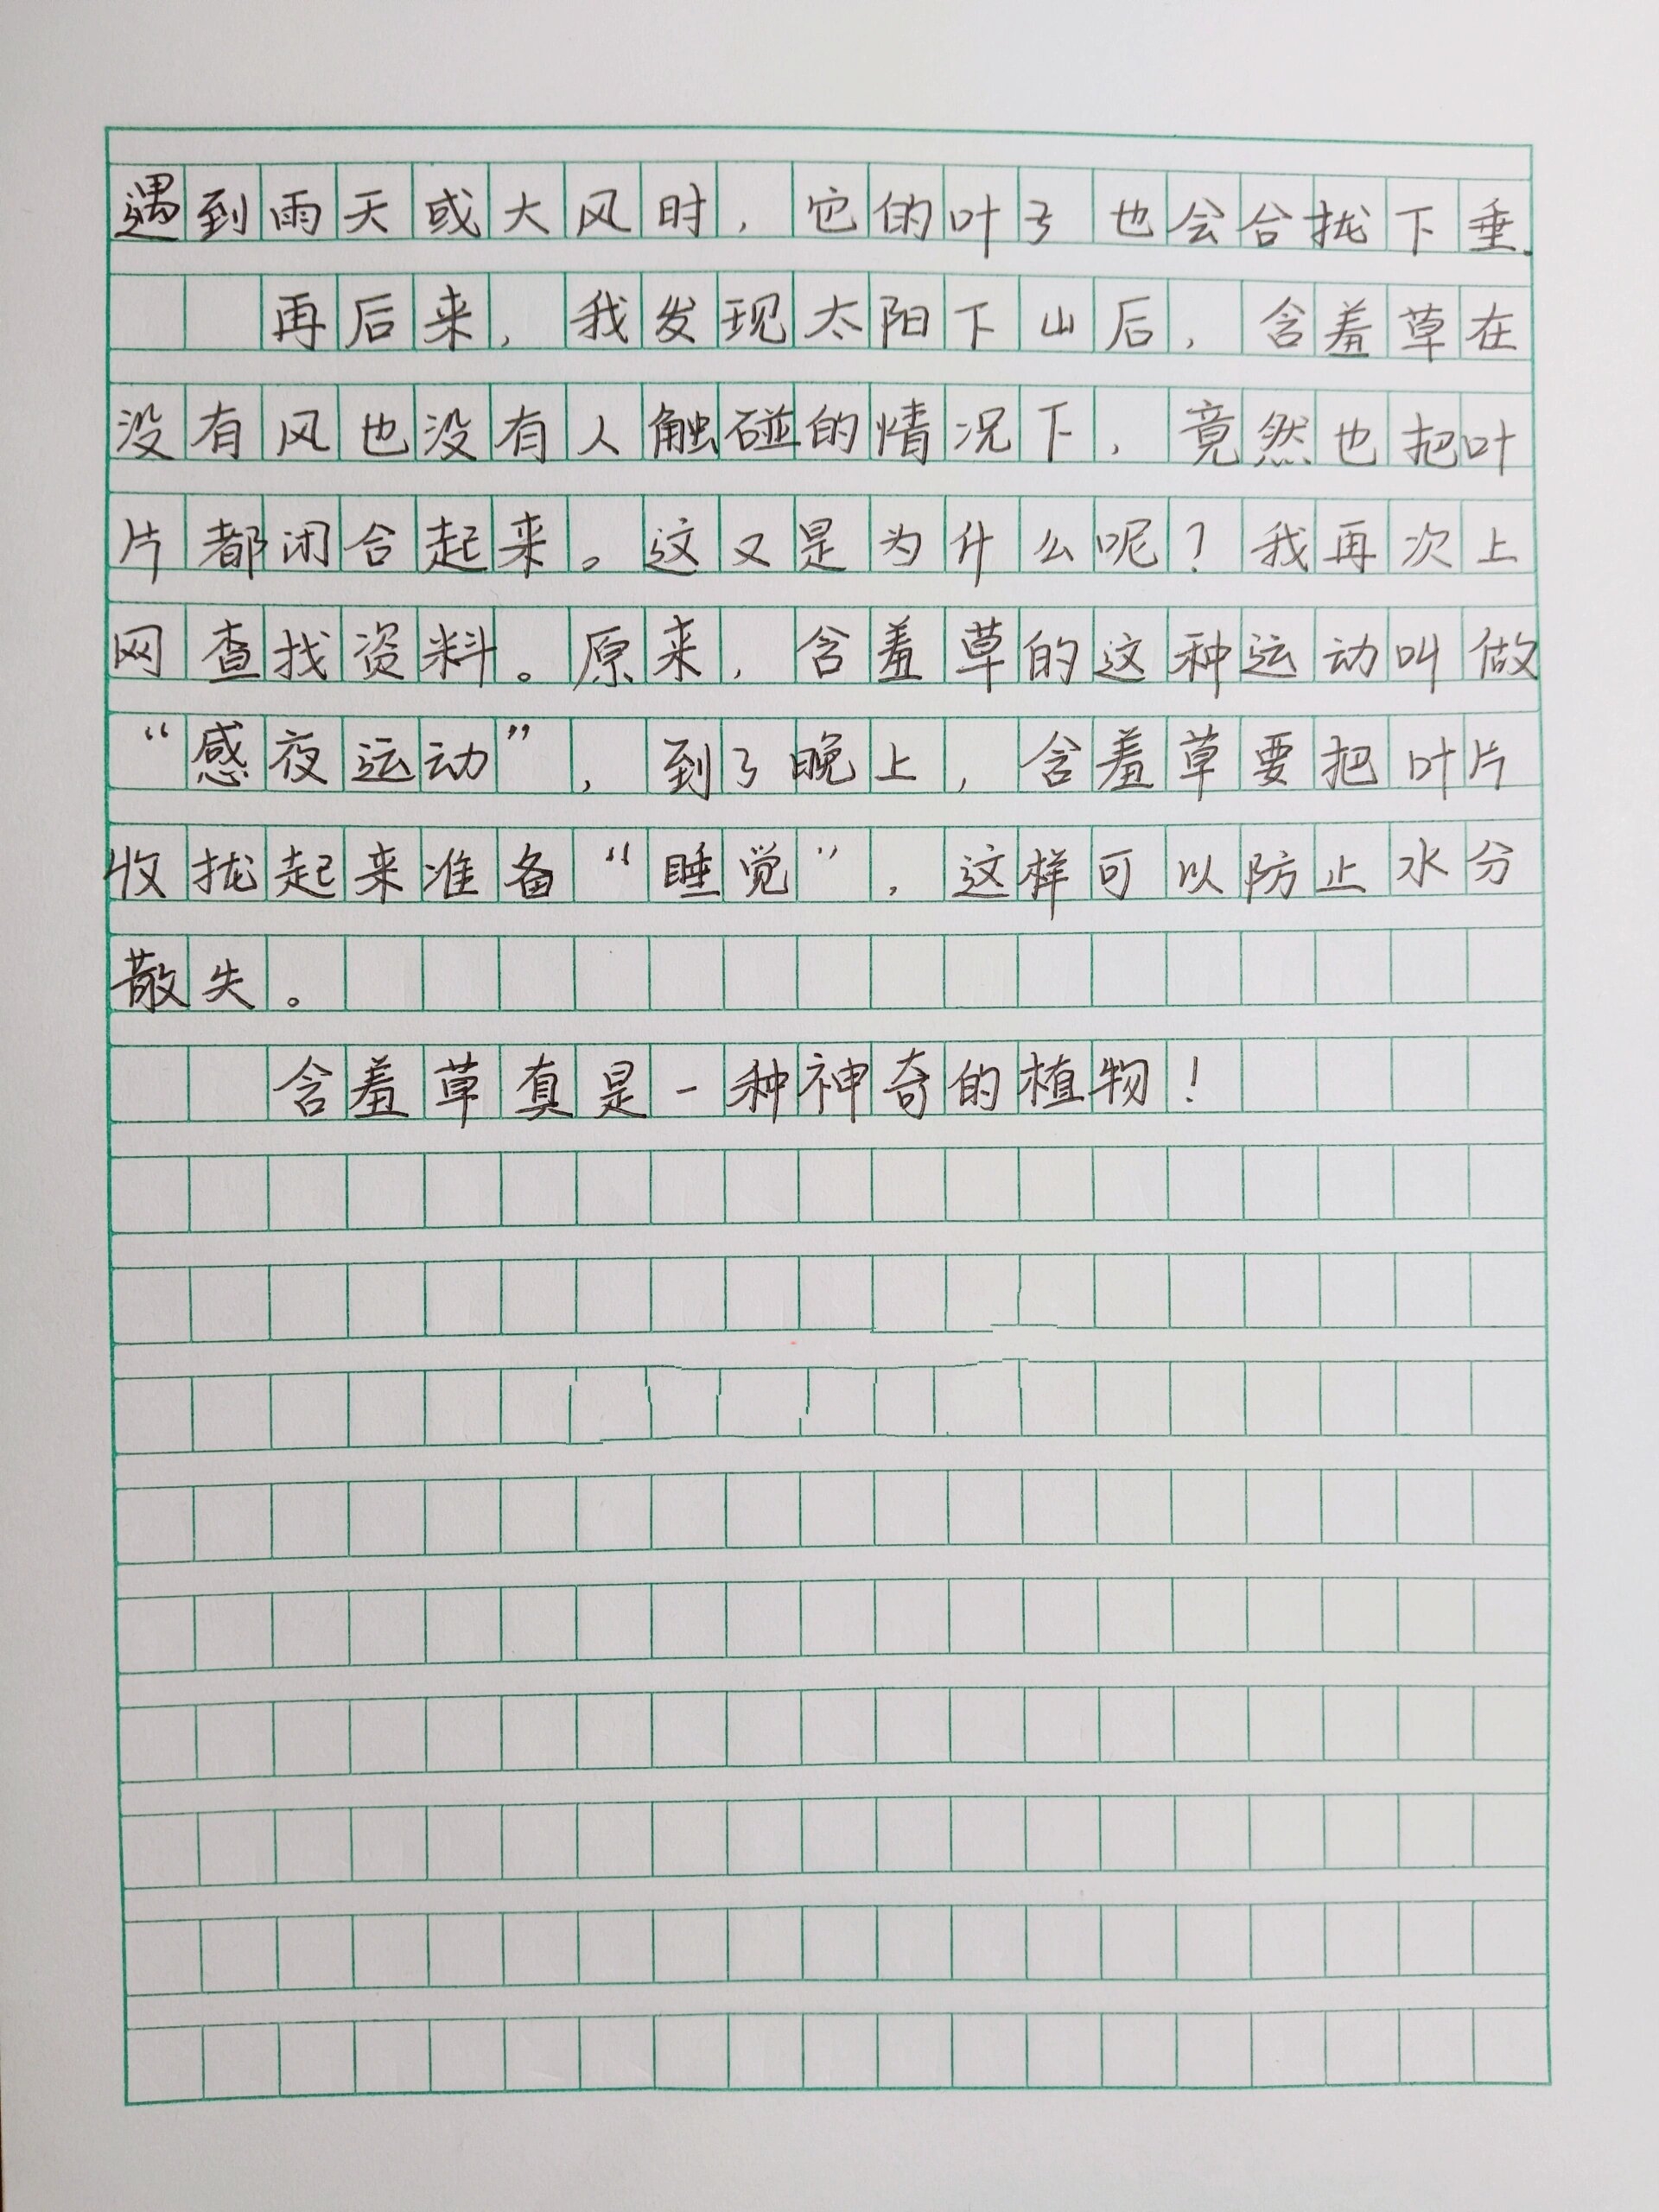 遇到雨天或大风时，它的叶子也会合拢下垂.
再后来，我发现太阳下山后，含羞草在
没有风也没有人触碰的情况下，竟然也把叶
片都闭合起来。这又是为什么呢？我再次上
网查找资料。原来，含羞草的这种运动叫做
“感夜运动”，到了晚上，含羞草要把叶片
收拢起来准备“睡觉”，这样可以防止水分
散失。
含羞草真是一种神奇的植物！